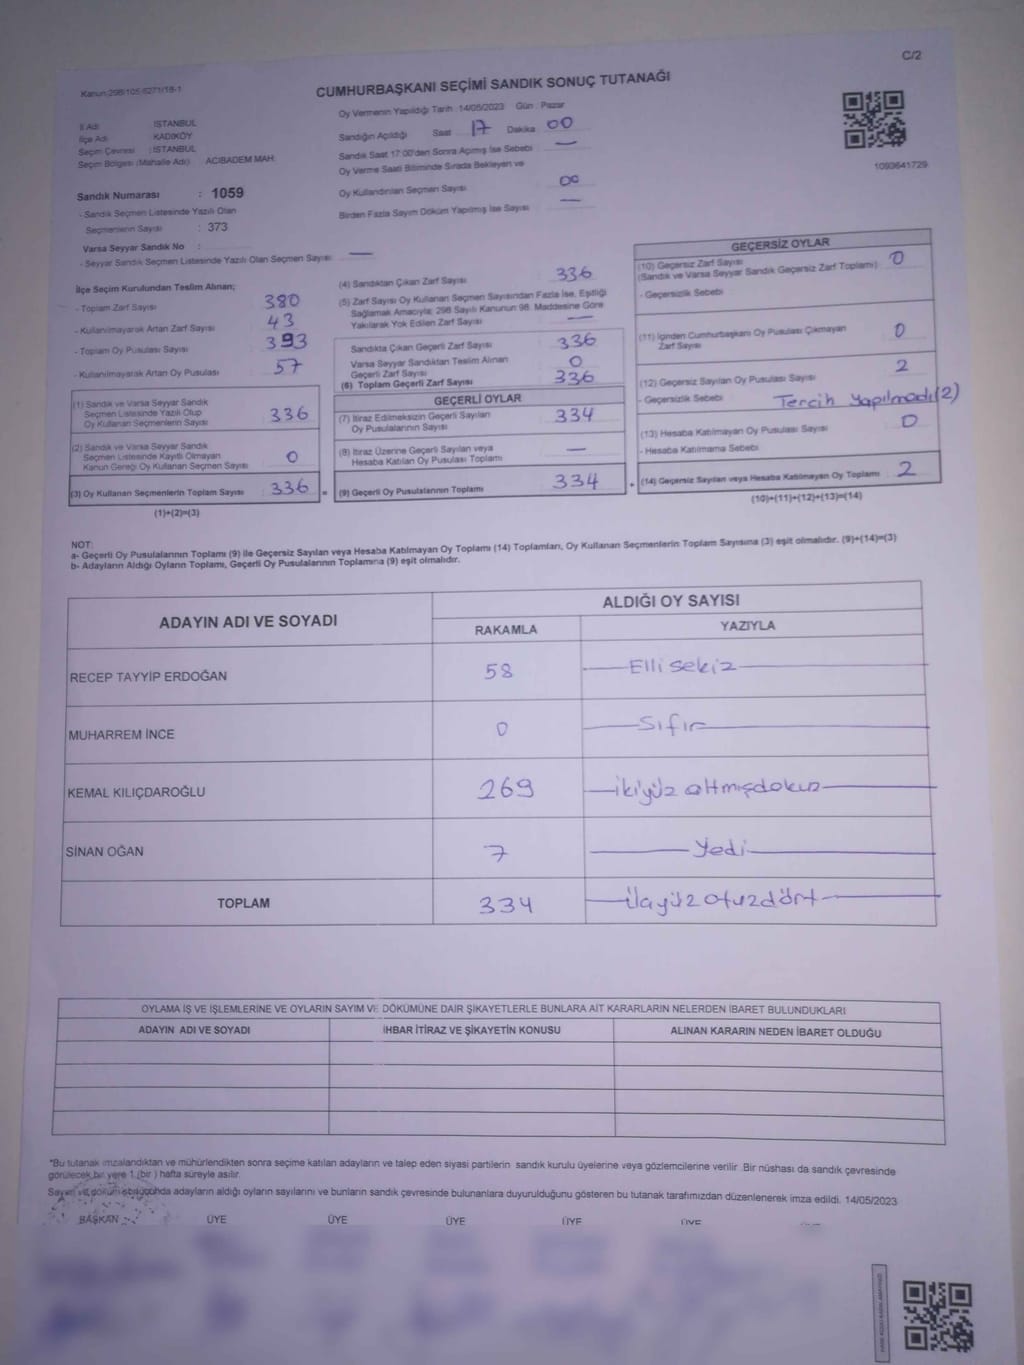 C/2
Kanun:298/105-6271/18-1
CUMHURBAŞKANI SEÇİMİ SANDIK SONUÇ TUTANAĞI
Oy Vermenin Yapıldığı Tarih :14/05/2023 Gün : Pazar
İl Adı : İSTANBUL
İlçe Adı : KADIKÖY
Seçim Çevresi : İSTANBUL
Seçim Bölgesi (Mahalle Adı) : ACIBADEM MAH.
Sandığın Açıldığı Saat 17 Dakika 00
Sandık Saat 17:00'den Sonra Açılmış İse Sebebi : —
Oy Verme Saati Bitiminde Sırada Bekleyen ve
Oy Kullandırılan Seçmen Sayısı 00
Birden Fazla Sayım Döküm Yapılmış İse Sayısı —
1093641729
Sandık Numarası : 1059
- Sandık Seçmen Listesinde Yazılı Olan
Seçmenlerin Sayısı : 373
Varsa Seyyar Sandık No :
- Seyyar Sandık Seçmen Listesinde Yazılı Olan Seçmen Sayısı: —
İlçe Seçim Kurulundan Teslim Alınan;
- Toplam Zarf Sayısı 380
- Kullanılmayarak Artan Zarf Sayısı 43
- Toplam Oy Pusulası Sayısı 393
- Kullanılmayarak Artan Oy Pusulası 57
(1) Sandık ve Varsa Seyyar Sandık
Seçmen Listesinde Yazılı Olup
Oy Kullanan Seçmenlerin Sayısı 336
(2) Sandık ve Varsa Seyyar Sandık
Seçmen Listesinde Kayıtlı Olmayan
Kanun Gereği Oy Kullanan Seçmen Sayısı 0
(3) Oy Kullanan Seçmenlerin Toplam Sayısı 336 =
(1)+(2)=(3)
(4) Sandıktan Çıkan Zarf Sayısı 336
(5) Zarf Sayısı Oy Kullanan Seçmen Sayısından Fazla İse, Eşitliği
Sağlamak Amacıyla; 298 Sayılı Kanunun 98. Maddesine Göre
Yakılarak Yok Edilen Zarf Sayısı —
Sandıkta Çıkan Geçerli Zarf Sayısı 336
Varsa Seyyar Sandıktan Teslim Alınan
Geçerli Zarf Sayısı 0
(6) Toplam Geçerli Zarf Sayısı 336
GEÇERLİ OYLAR
(7) İtiraz Edilmeksizin Geçerli Sayılan
Oy Pusulalarının Sayısı 334
(8) İtiraz Üzerine Geçerli Sayılan veya
Hesaba Katılan Oy Pusulası Toplamı —
(9) Geçerli Oy Pusulalarının Toplamı 334 +
GEÇERSİZ OYLAR
(10) Geçersiz Zarf Sayısı
(Sandık ve Varsa Seyyar Sandık Geçersiz Zarf Toplamı) 0
- Geçersizlik Sebebi
(11) İçinden Cumhurbaşkanı Oy Pusulası Çıkmayan
Zarf Sayısı 0
(12) Geçersiz Sayılan Oy Pusulası Sayısı 2
- Geçersizlik Sebebi Tercih Yapılmadı(2)
(13) Hesaba Katılmayan Oy Pusulası Sayısı 0
- Hesaba Katılmama Sebebi
(14) Geçersiz Sayılan veya Hesaba Katılmayan Oy Toplamı 2
(10)+(11)+(12)+(13)=(14)
NOT:
a- Geçerli Oy Pusulalarının Toplamı (9) ile Geçersiz Sayılan veya Hesaba Katılmayan Oy Toplamı (14) Toplamları, Oy Kullanan Seçmenlerin Toplam Sayısına (3) eşit olmalıdır. (9)+(14)=(3)
b- Adayların Aldığı Oyların Toplamı, Geçerli Oy Pusulalarının Toplamına (9) eşit olmalıdır.
ADAYIN ADI VE SOYADI
ALDIĞI OY SAYISI
RAKAMLA YAZIYLA
RECEP TAYYİP ERDOĞAN 58 Elli sekiz
MUHARREM İNCE 0 Sıfır
KEMAL KILIÇDAROĞLU 269 ikiyüz altmışdokuz
SİNAN OĞAN 7 Yedi
TOPLAM 334 otuzdört
OYLAMA İŞ VE İŞLEMLERİNE VE OYLARIN SAYIM VE DÖKÜMÜNE DAİR ŞİKAYETLERLE BUNLARA AİT KARARLARIN NELERDEN İBARET BULUNDUKLARI
ADAYIN ADI VE SOYADI İHBAR İTİRAZ VE ŞİKAYETİN KONUSU ALINAN KARARIN NEDEN İBARET OLDUĞU
*Bu tutanak imzalandıktan ve mühürlendikten sonra seçime katılan adayların ve talep eden siyasi partilerin sandık kurulu üyelerine veya gözlemcilerine verilir. Bir nüshası da sandık çevresinde
görülecek bir yere 1 (bir ) hafta süreyle asılır.
Sayım ve adayların aldığı oyların sayılarını ve bunların sandık çevresinde bulunanlara duyurulduğunu gösteren bu tutanak tarafımızdan düzenlenerek imza edildi. 14/05/2023
BAŞKAN ÜYE ÜYE ÜYE ÜYE ÜYE